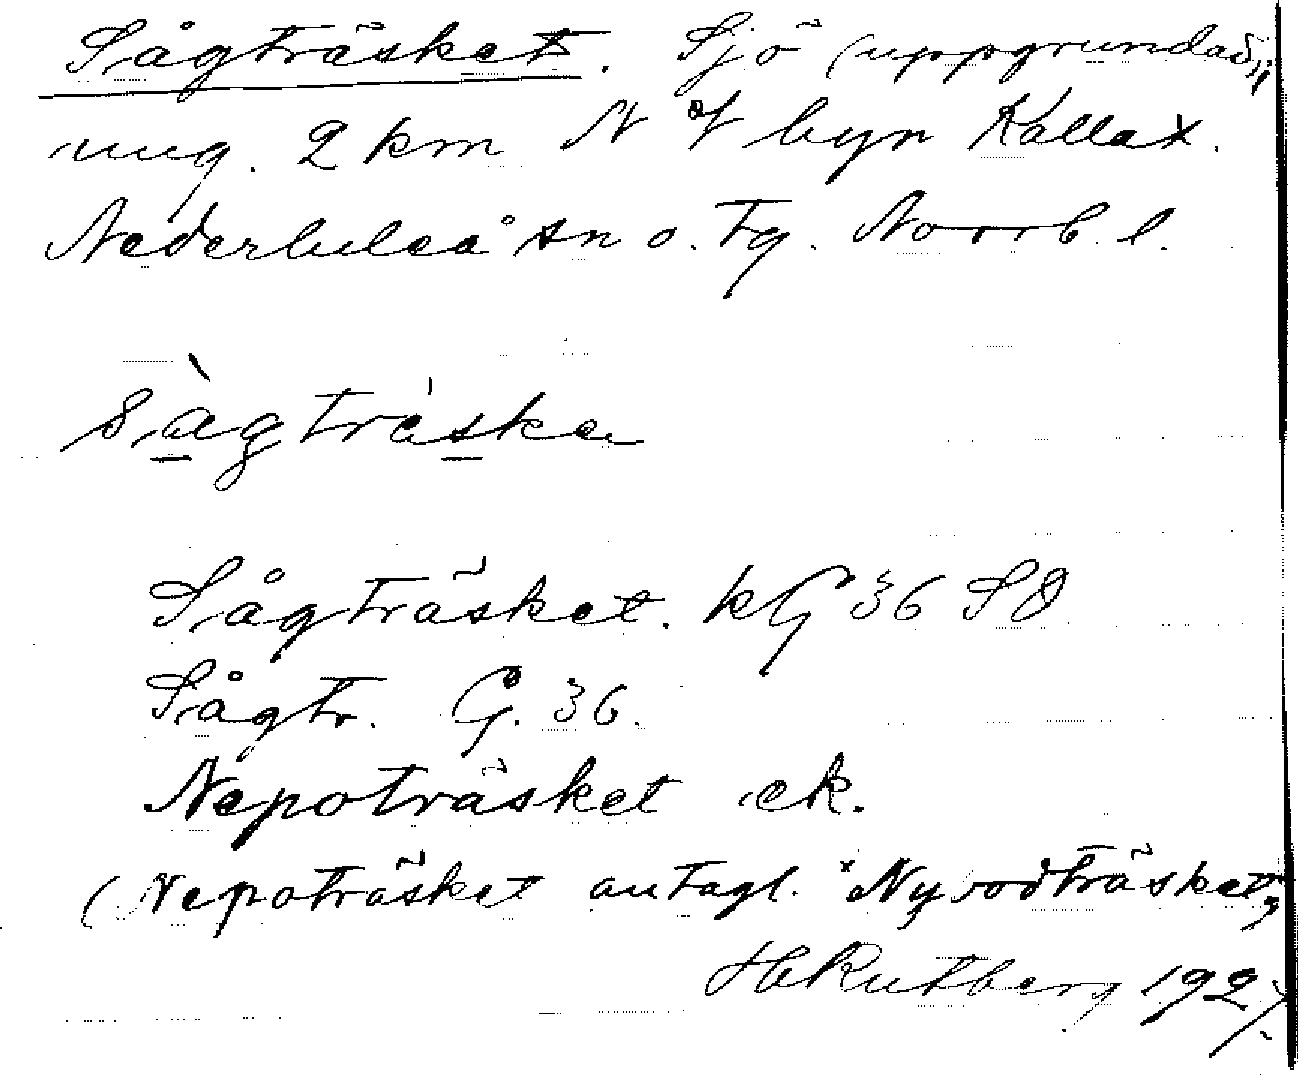 Sågträsket. Sjö (uppgrundad),
ung. 2 km N of byn Kallax.
Nederluleå sn o. tg. Norrb. l.
sàgtráska
Sågträsket. kG 36 SO
Sågtr. G. 36.
Nepoträsket ek.
(Nepoträsket antagl. *Nyrodträsket,
H Rutberg 1927.